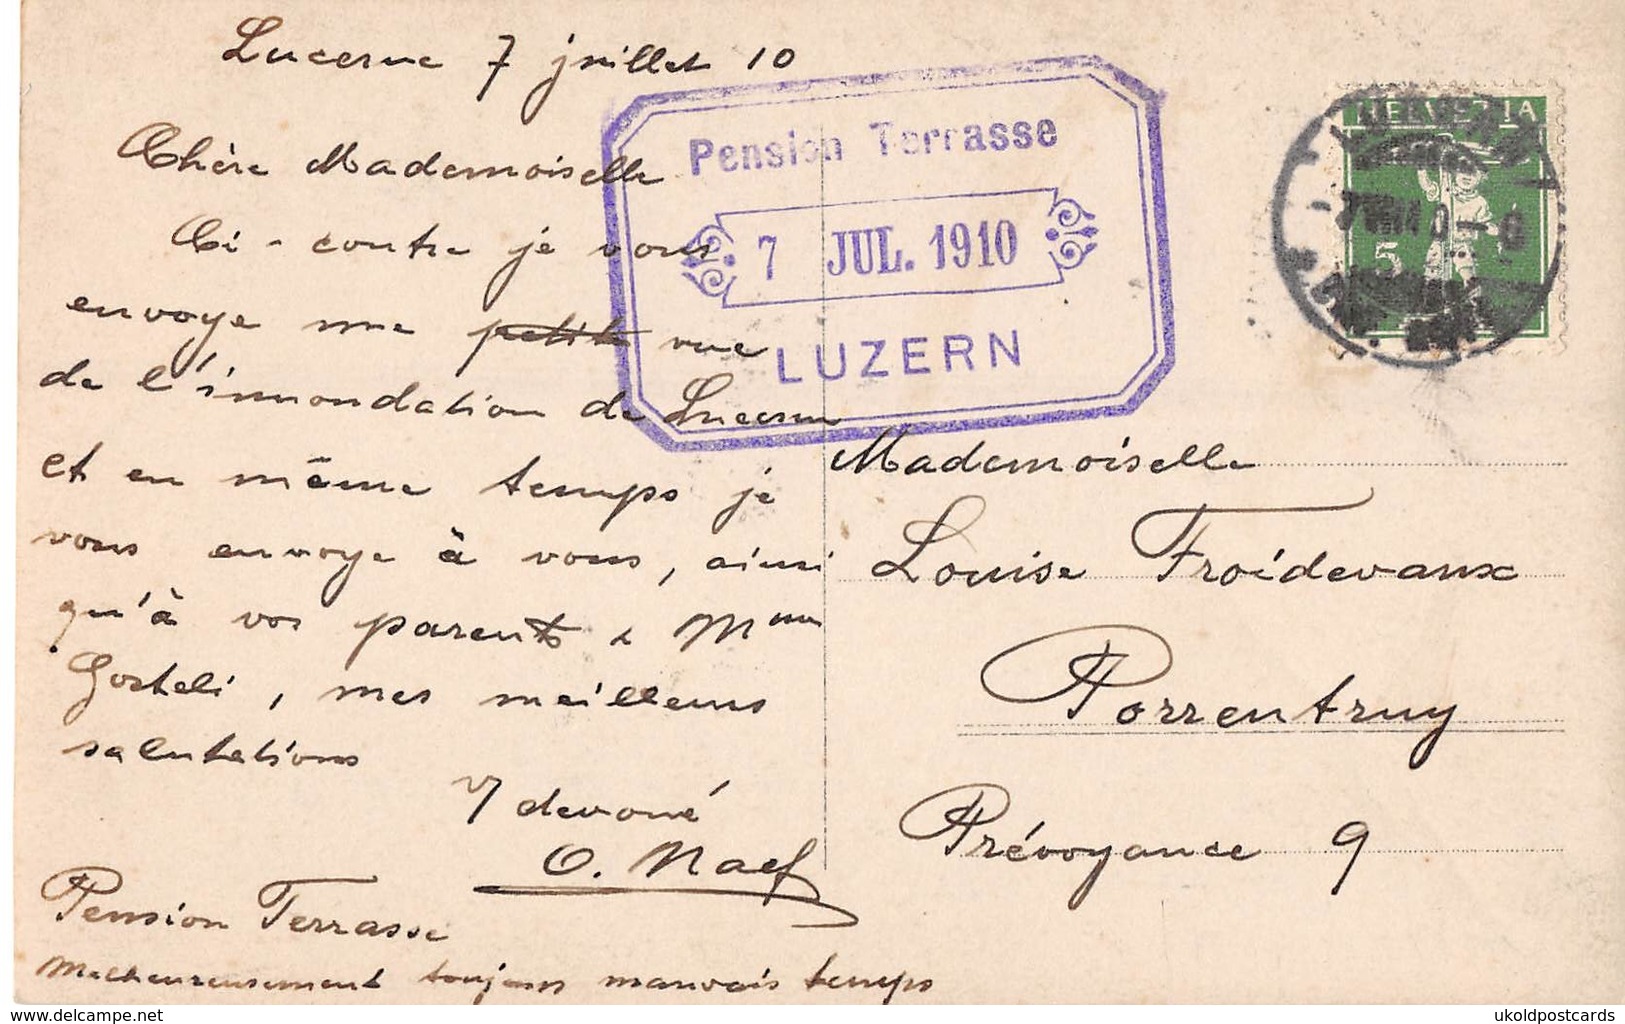 Lucerne 7 juillet 10
Chère Mademoiselle
Ci-contre je vous
envoye une petite vue
de l'innondation de Lucerne
et en même temps je
vous envoye à vous, ainsi
qu'à vos parents & Mme
Gosteli, mes meilleurs
salutations
devoué
O. Naef
Pension Terrasse
Malheureusement toujours mauvais temps
Pension Terrasse
7 JUL. 1910
LUZERN
HELVETIA
5
Mademoiselle
Louise Froidevaux
Porrentruy
Prévoyance 9
www.delcampe.net
ukoldpostcards